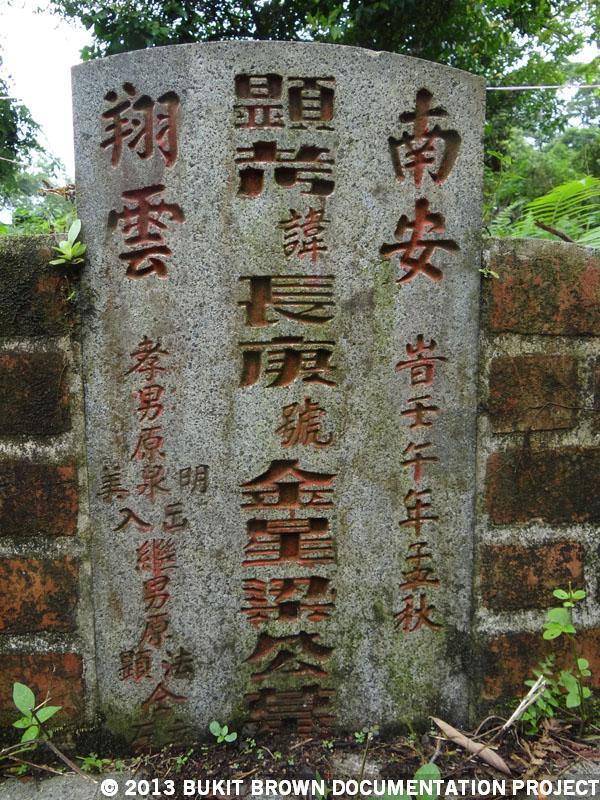 南安
旹壬午年孟秋
顯考諱長庚號金星梁公墓
翔雲
孝男原
明
泉
美
入
繼男原
法
顯
仝